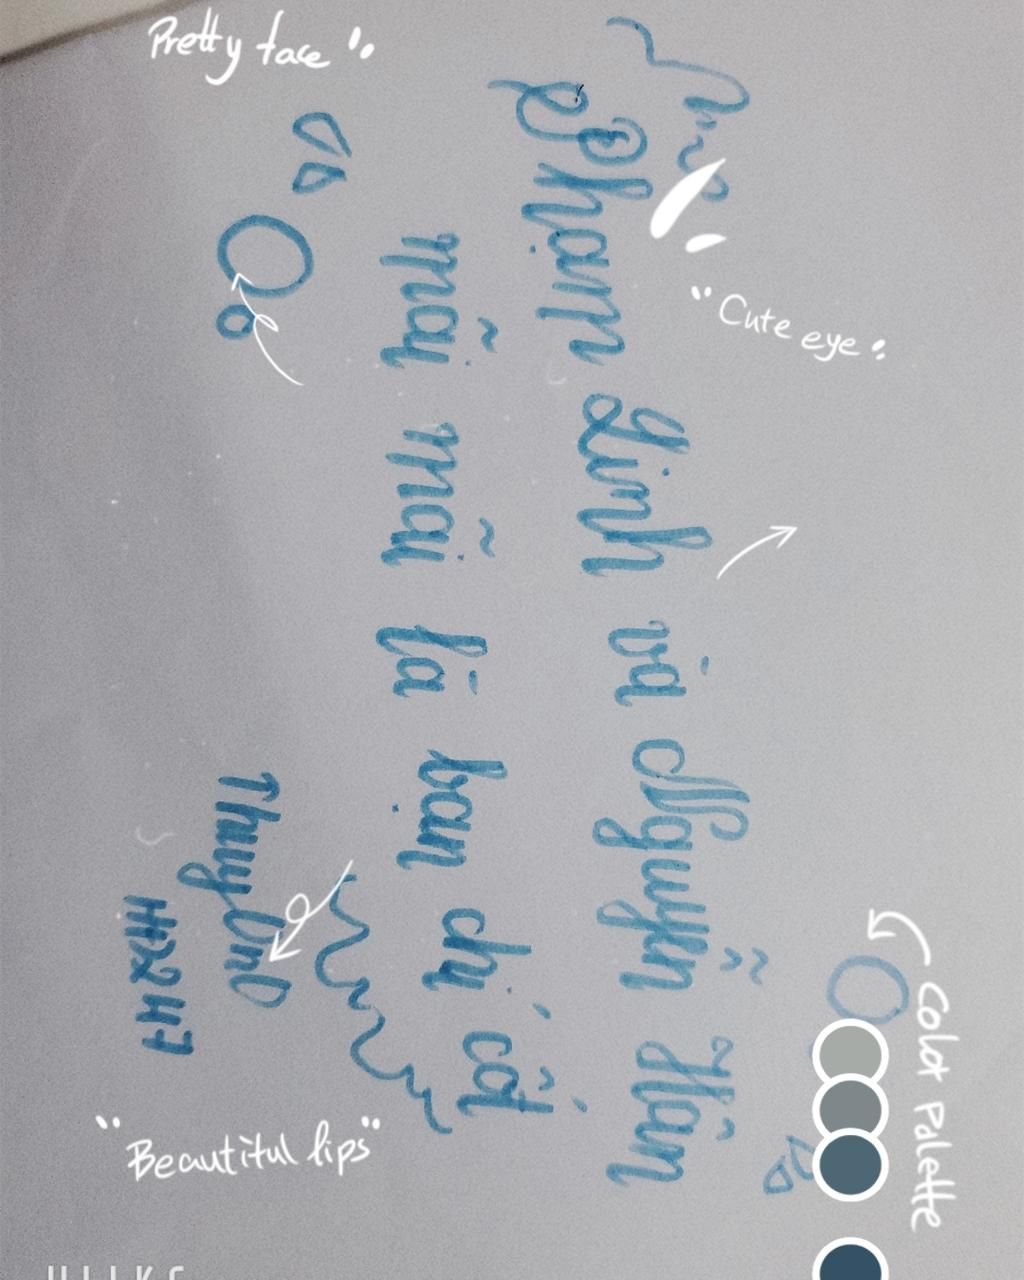 Pretty face
"Cute eye"
Phạm Linh và Nguyễn Hân
mãi mãi là bạn chí cốt
H2247
Color Palette
"Beautiful lips"